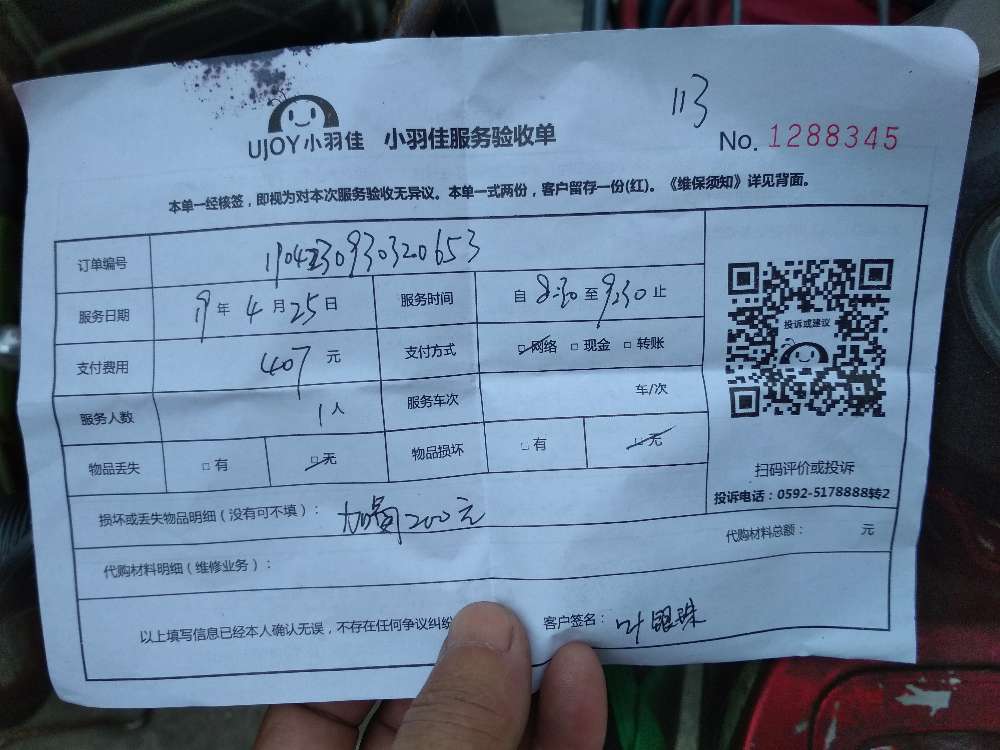 113
UJOY小羽佳 小羽佳服务验收单 No. 1288345
本单一经核签，即视为对本次服务验收无异议。本单一式两份，客户留存一份(红)。《维保须知》详见背面。
订单编号
服务日期 19 年 4 月 25 日 服务时间 自 8:30 至 9:30 止
支付费用 407 元 支付方式 网络 □ 现金 □ 转账
服务人数 1 人 服务车次 车/次
物品丢失 □ 有 □ 无 物品损坏 □ 有 □ 无
投诉或建议
扫码评价或投诉
投诉电话：0592-5178888转2
损坏或丢失物品明细（没有可不填）： 200元
代购材料明细（维修业务）： 代购材料总额： 元
以上填写信息已经本人确认无误，不存在任何争议纠纷 客户签名： 叶银珠